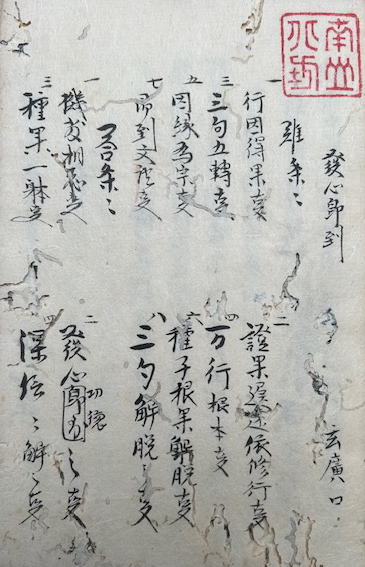 南山
發心即到 玄廣口
難条々
一 行因得果事 二 證果遅速依修行事
三 三句五轉事 四 万行根本事
五 因縁為宗事 六 種子根果解脱事
七 即到文證事 八 三句解脱々事
答条々
一 機教相應事 二 發心功徳之事
三 種果一躰事 四 深信々解々事